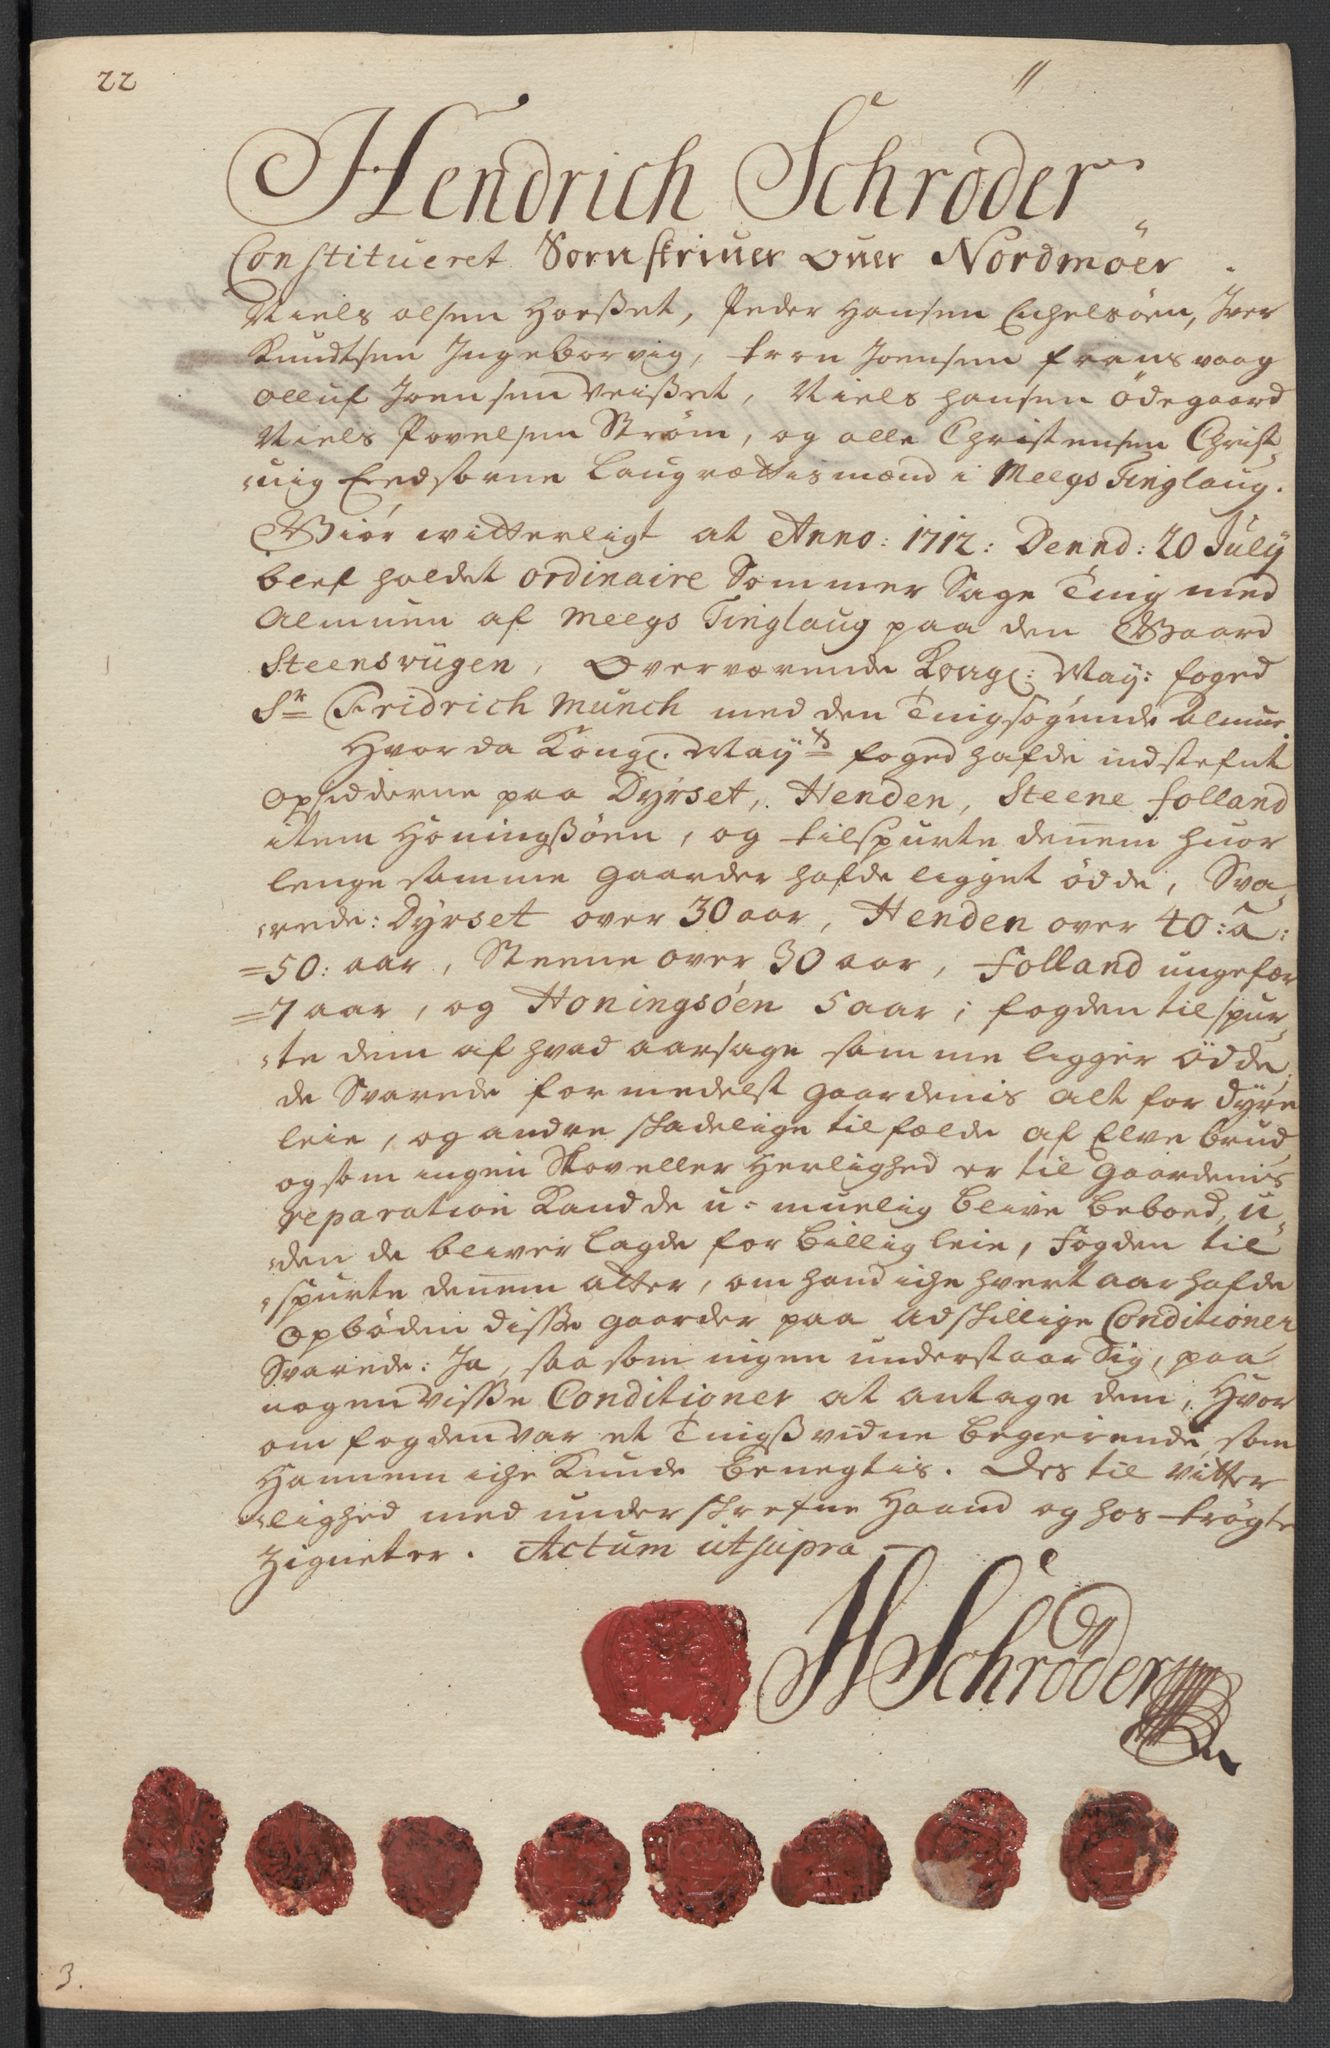 22
11
Hendrich Schrøder
Constitueret Sorenskriuer over Nordmöer
Niels Olsen Horßet, Peder Hansen Eichelsöen, Iver
Knudtsen Ingeborvig, Tron Joensen Fransvaag
Olluf Joensen Veißet, Niels Hansen Ödegaard
Niels Povelsen Ström, og Olle Christensen Christ-
uig Eedsorne Laugrættismænd i Meegs Tinglaug.
Giör witterligt at Anno: 1712: Dennd: 20 July
blef holdet ordinaire Sommer Sage Ting med
Almuen af Meegs Tinglaug paa den Gaard
Steensvügen, Overværende Kongl: May: foged
Sr Fridrich Münch med den Tingsøgende almue.
Hvor da Kongl. Mayts foged hafde indstefnt
Opsidderne paa Dyrset, Henden, Steene, Folland
item Honingßöen, og tilspurte dennem huor
lenge samme gaarder hafde ligget ödde, Sva-
rede: Dyrset over 30 aar, Henden over 40: a:
50: aar, Steene over 30 aar, Folland ungefær
7 aar, og Honingsöen 5 aar; fogden tilspur-
te dem af hvad aarsage samme ligger ödde,
de Svarede formedelst gaardenis alt for dyre
leie, og andre skadelige tilfælde af Elvebrud
og som ingen Skov eller Herlighed er til gaardenis
reparation kand de u-muelig blive beboed, u-
den de bliver lagde for billig leie, Fogden til
spurte dennem atter, om hand iche hvert aar hafde
opböden disse gaarder paa adskillige Conditioner
Svarede: Ja, saasom ingen understaar sig, paa
nogen visse Conditioner at antage dem, Hvor
om fogden var et Tingßvidne begierende, som
Hannem iche kunde benegtis. Des til Vitter
lighed med underskrefne Haand og hoströgte
Zigneter. Actum ut supra
H Schröder
3.